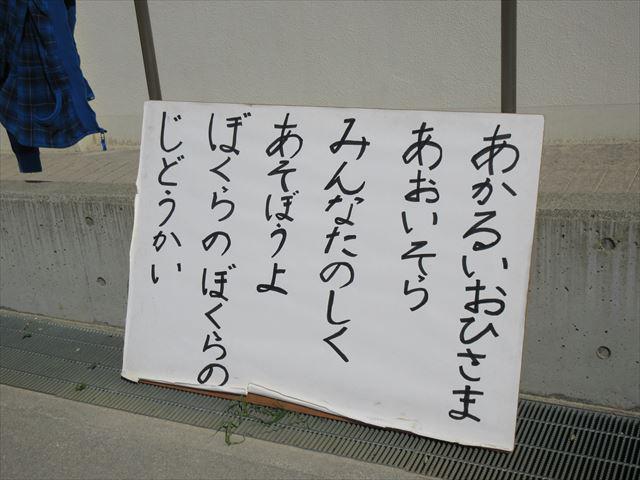 あかるいおひさま
あおいそら
みんなたのしく
あそぼうよ
ぼくらのぼくらの
じどうかい